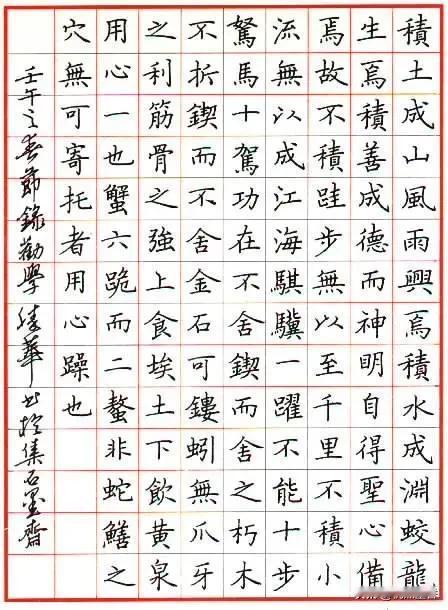 積土成山風雨興焉積水成淵蛟龍
生焉積善成德而神明自得聖心備
焉故不積跬步無以至千里不積小
流無以成江海騏驥一躍不能十步
駑馬十駕功在不舍鍥而舍之朽木
不折鍥而不舍金石可鏤蚓無爪牙
之利筋骨之強上食埃土下飲黃泉
用心一也蟹六跪而二螯非蛇鱔之
穴無可寄托者用心躁也
壬午之春節錄勸學華書於集石墨齋